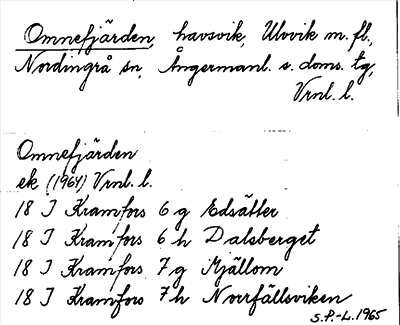 Omnefjärden, havsvik, Ulvvik m. fl.,
Nordingrå sn, Ångermanl. s. doms. tg,
Vrnl. l.
Omnefjärden
ek (1964) Vrnl. l.
18 I Kramfors 6 g Edsätter
18 I Kramfors 6 h Dalsberget
18 I Kramfors 7 g Mjällom
18 I Kramfors 7 h Norrfällsviken
S.P.-L. 1965